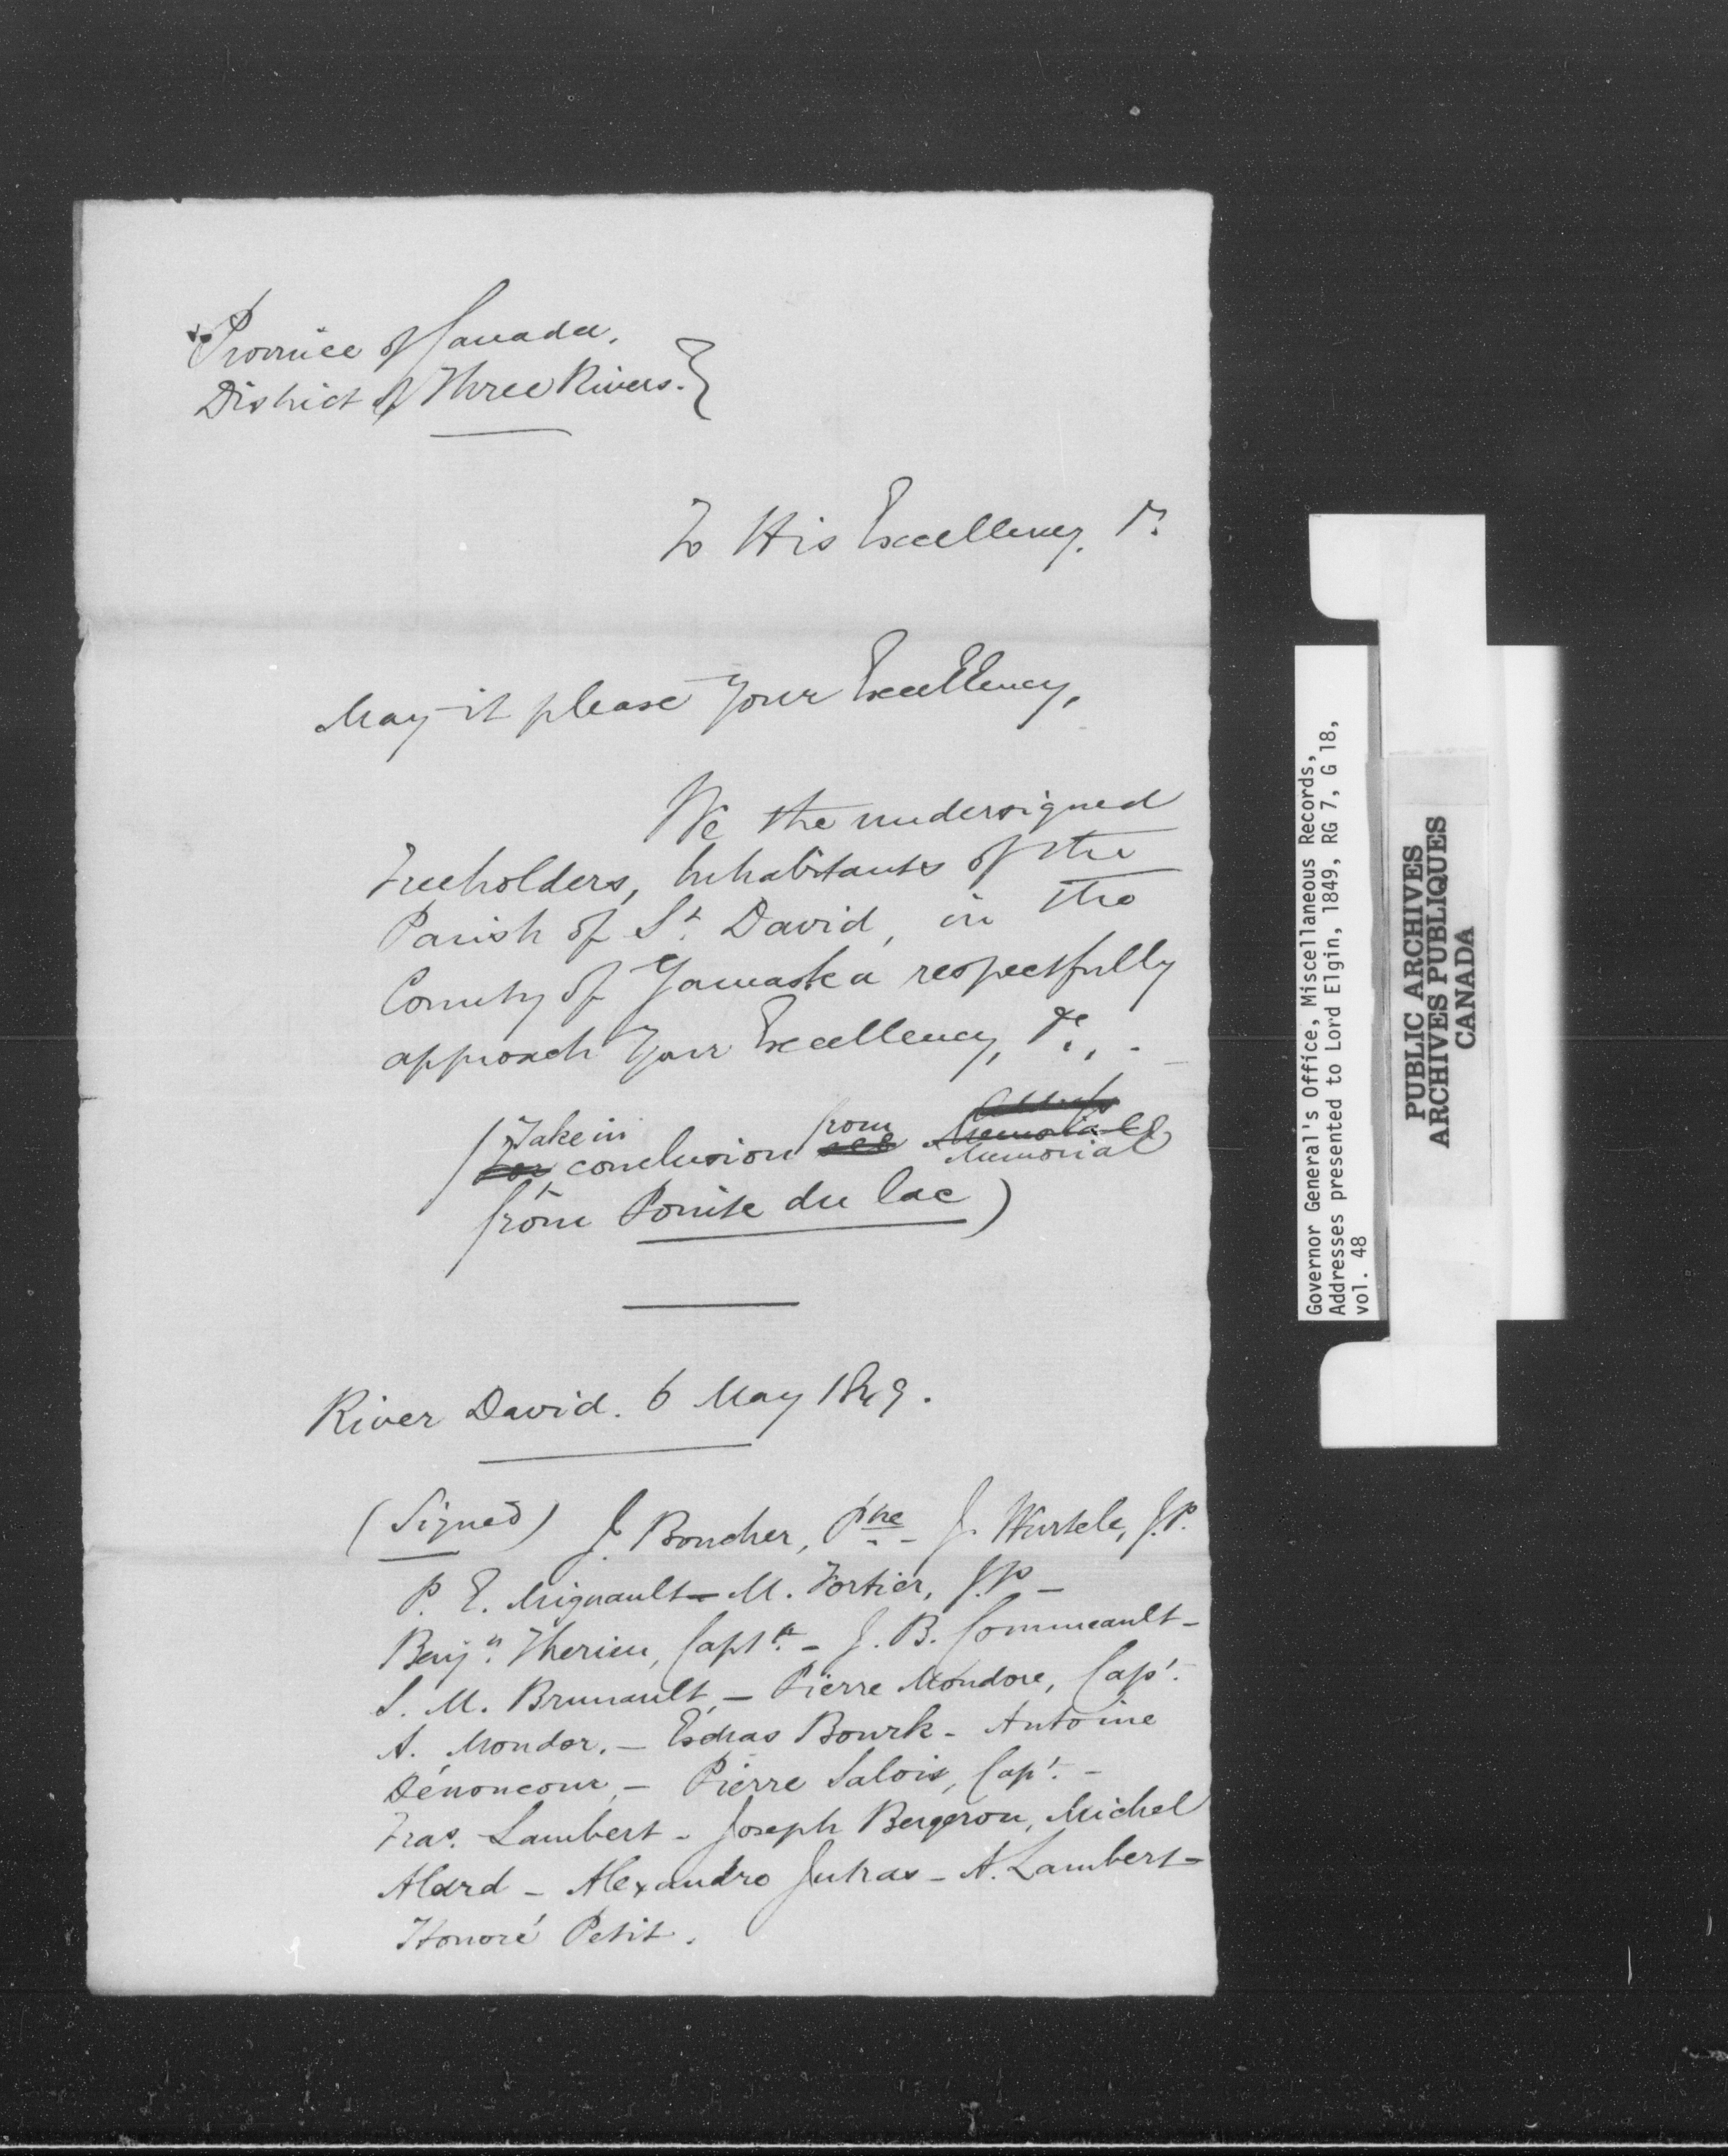 Province of Canada.
District of Three Rivers. }
To His Excellency. &c.
May it please Your Excellency,
We the undersigned
Freeholders, Inhabitants of the
Parish of St. David, in the
County of Yamaska respectfully
approach Your Excellency, &c., -
(Take in conclusion from Memorial
from Pointe du lac)
River David. 6 May 1849.
(Signed) J. Boucher, Ptre - J. Wurtele, J.P.
P. E. Mignault - M. Fortier, J.P -
Benjn. Therien, Captn. - J. B. Commeault -
S. M. Brunault, - Pierre Mondore, Capt.
A. Mondor. - Esdras Bourk - Antoine
Dénoncour, - Pierre Salois, Capt. -
Fras. Lambert - Joseph Bergeron, Michel
Alard - Alexandre Jutras - A. Lambert -
Honoré Petit.
Governor General's Office, Miscellaneous Records,
Addresses presented to Lord Elgin, 1849, RG 7, G 18,
vol. 48
PUBLIC ARCHIVES
ARCHIVES PUBLIQUES
CANADA